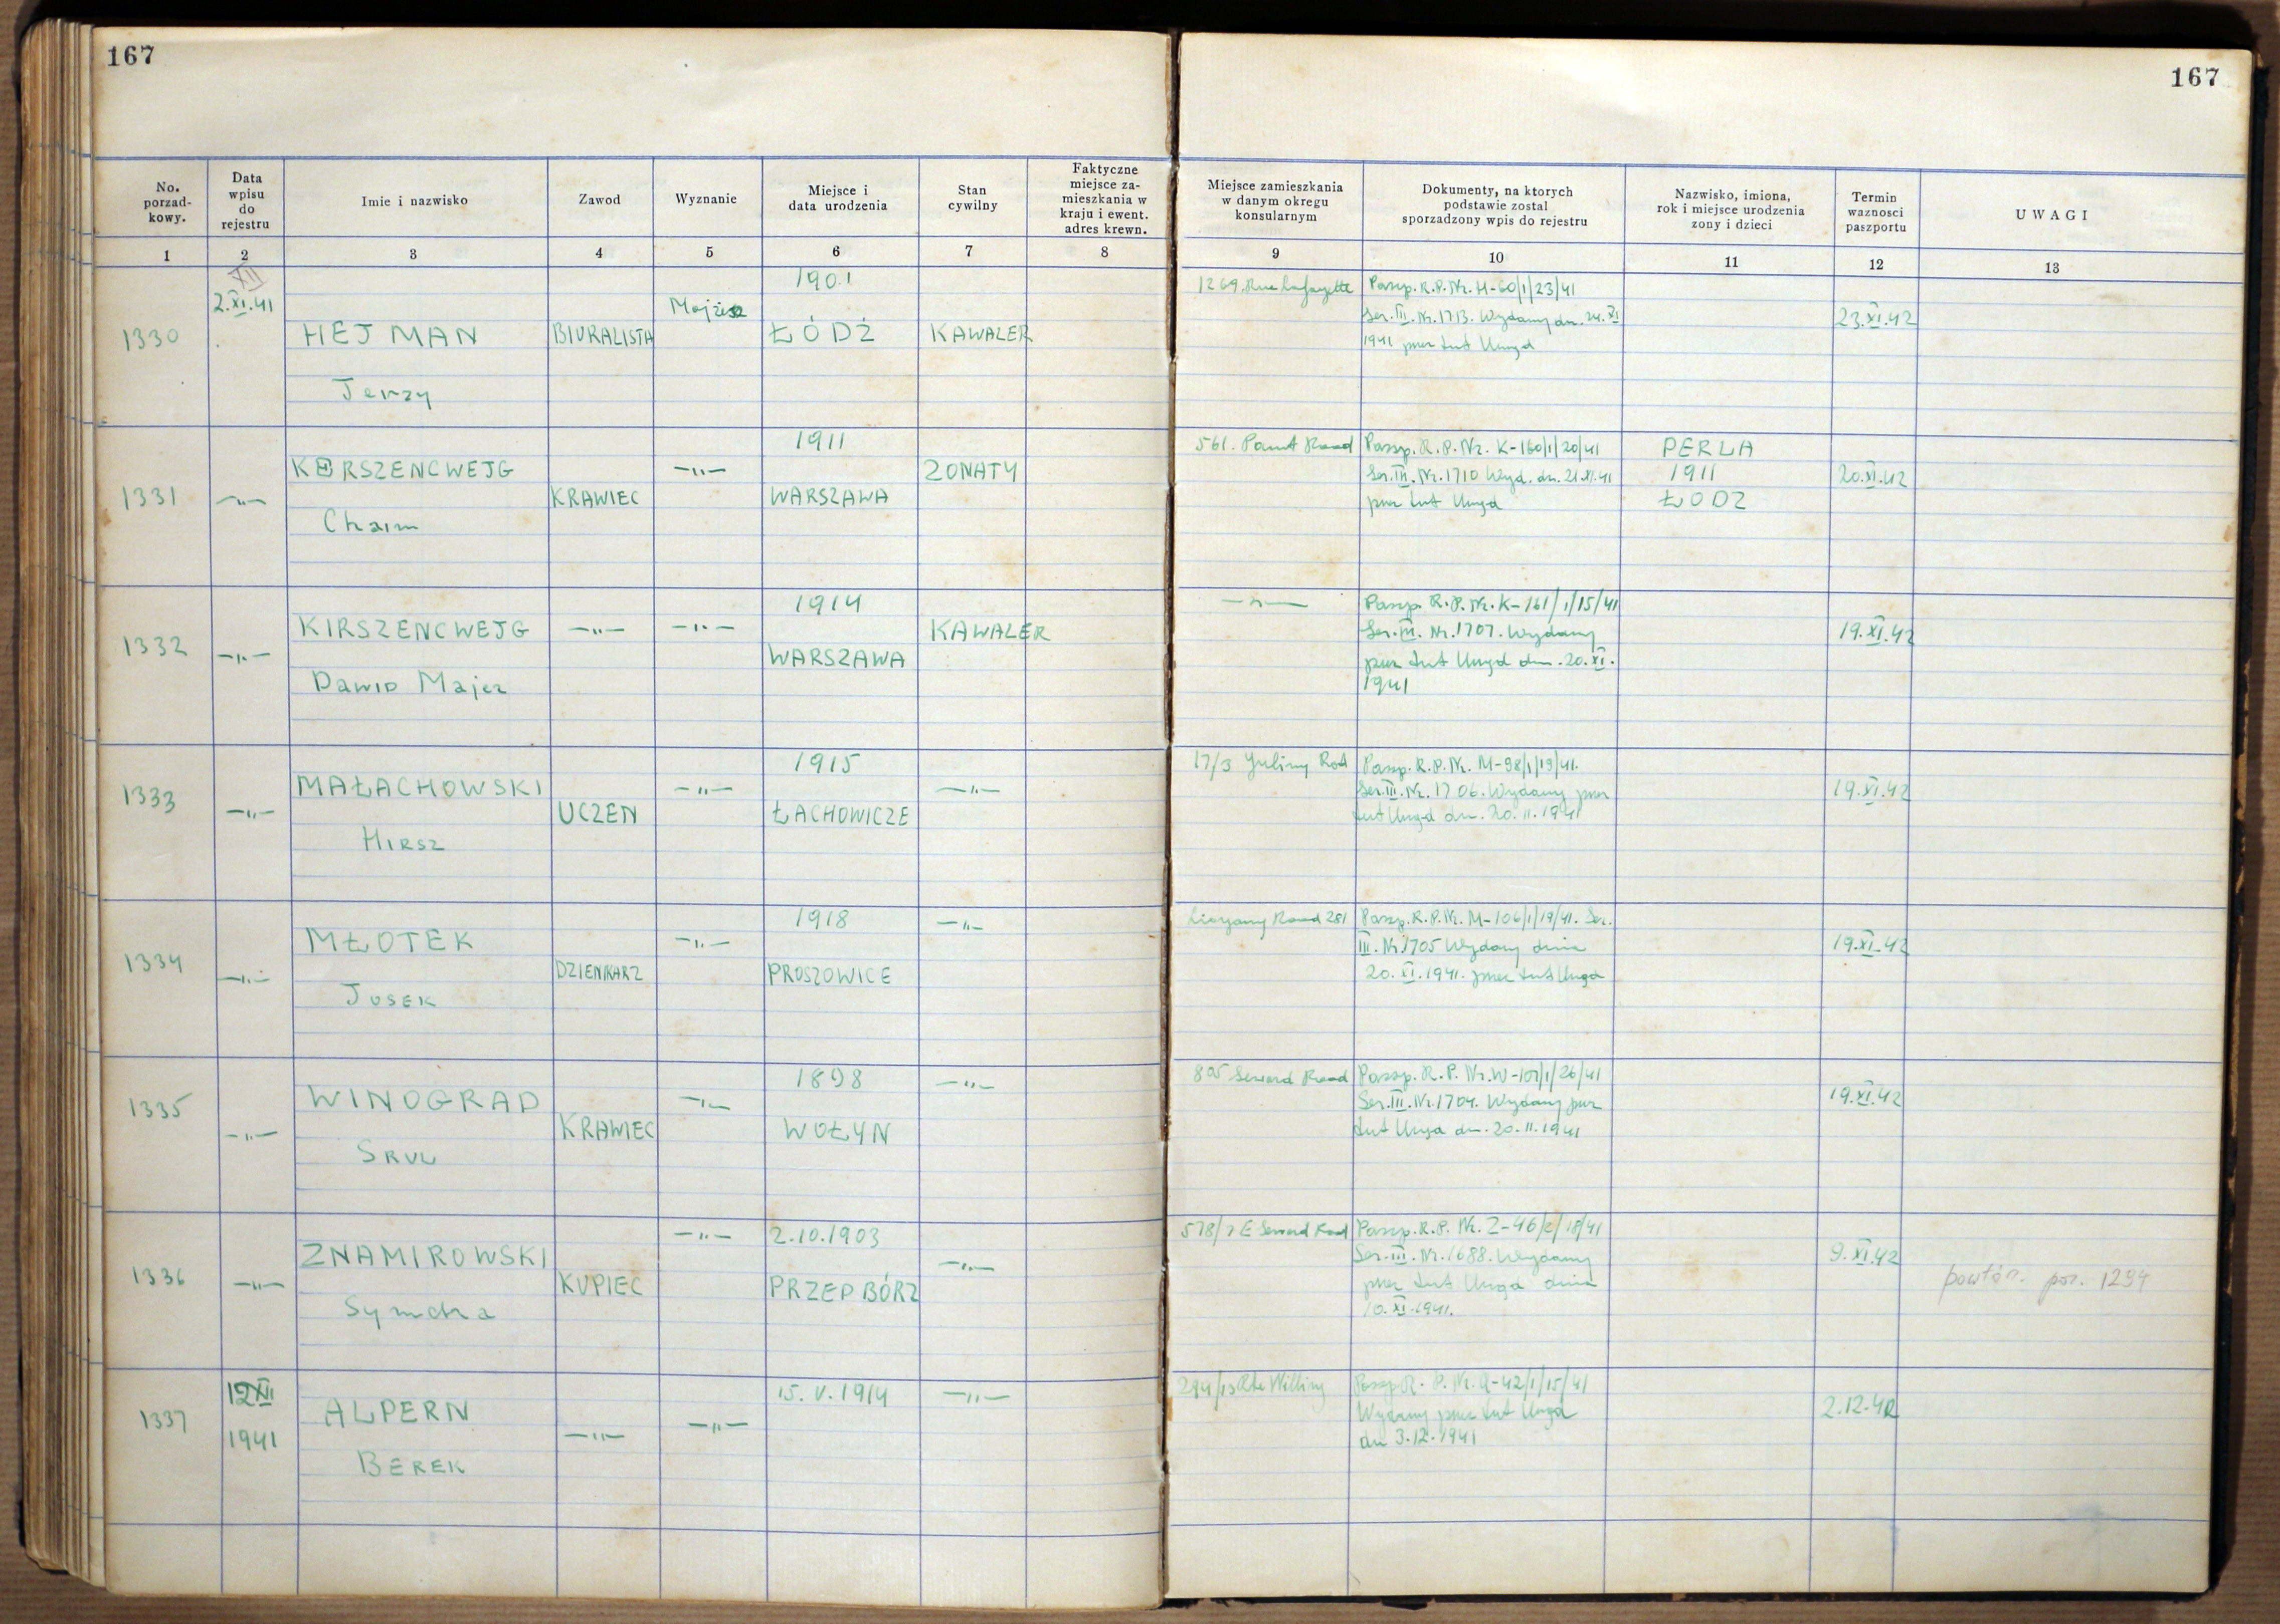 167
167
No. porzad-kowy.
Data wpisu do rejestru
Imie i nazwisko
Zawod
Wyznanie
Miejsce i data urodzenia
Stan cywilny
Faktyczne miejsce za-mieszkania w kraju i ewent. adres krewn.
Miejsce zamieszkania w danym okregu konsularnym
Dokumenty, na ktorych podstawie zostal sporzadzony wpis do rejestru
Nazwisko, imiona, rok i miejsce urodzenia zony i dzieci
Termin waznosci paszportu
UWAGI
1 2 3 4 5 6 7 8 9 10 11 12 13
1330
XII
2.XI.41
HEJMAN
Jerzy
BIURALISTA
Mojżesz
1901
ŁÓDŹ
KAWALER
1269. Rue Lafayette
Passp. R.P. Nr. H-60/1/23/41
Ser. III. Nr. 1713. Wydany dn. 24. XI
1941 przez tut Urząd
23.XI.42
1331
—"—
KERSZENCWEJG
Chaim
KRAWIEC
—"—
1911
WARSZAWA
ZONATY
561. Road
Passp. R.P. Nr. K-160/1/20/41
Ser. III. Nr. 1710 Wyd. dn. 21.XI.41
przez tut Urząd
PERLA
1911
ŁODZ
20.XI.42
1332
—"—
KIRSZENCWEJG
Dawid Majer
—"—
—"—
1914
WARSZAWA
KAWALER
—"—
Passp. R.P. Nr. K-161/1/15/41
Ser. III. Nr. 1707. Wydany
przez tut Urząd dn. 20.XI.
1941
19.XI.42
1333
—"—
MAŁACHOWSKI
Hirsz
UCZEN
—"—
1915
ŁACHOWICZE
—"—
17/3
Passp. R.P. Nr. M-98/1/19/41.
Ser. III. Nr. 1706. Wydany przez
tut Urząd dn. 20.11.1941
19.XI.42
1334
—"—
MŁOTEK
Josek
DZIENIKARZ
—"—
1918
PROSZOWICE
—"—
Road 281
Passp. R.P. Nr. M-106/1/19/41. Ser.
III. Nr 1705 Wydany dnia
20. XI. 1941. przez tut Urząd
19.XI.42
1335
—"—
WINOGRAD
Srul
KRAWIEC
—"—
1898
WOŁYN
—"—
805 Seward Road
Passp. R.P. Nr. W-101/1/26/41
Ser. III. Nr. 1704. Wydany przez
tut Urząd dn. 20.11.1941
19.XI.42
1336
—"—
ZNAMIROWSKI
Symcha
KUPIEC
—"—
2.10.1903
PRZEPBÓRZ
—"—
578/7 E Seward Road
Passp. R.P. Nr. Z-46/2/18/41
Ser. III. Nr. 1688. Wydany
przez tut Urząd dnia
10.XI.1941.
9.XI.42
powtór. poz. 1294
1337
12XII
1941
ALPERN
BEREK
—"—
—"—
15.V.1914
—"—
294/13 Rte
Passp R.P. Nr. A-42/1/15/41
Wydany przez tut Urząd
dn 3.12.1941
2.12.42